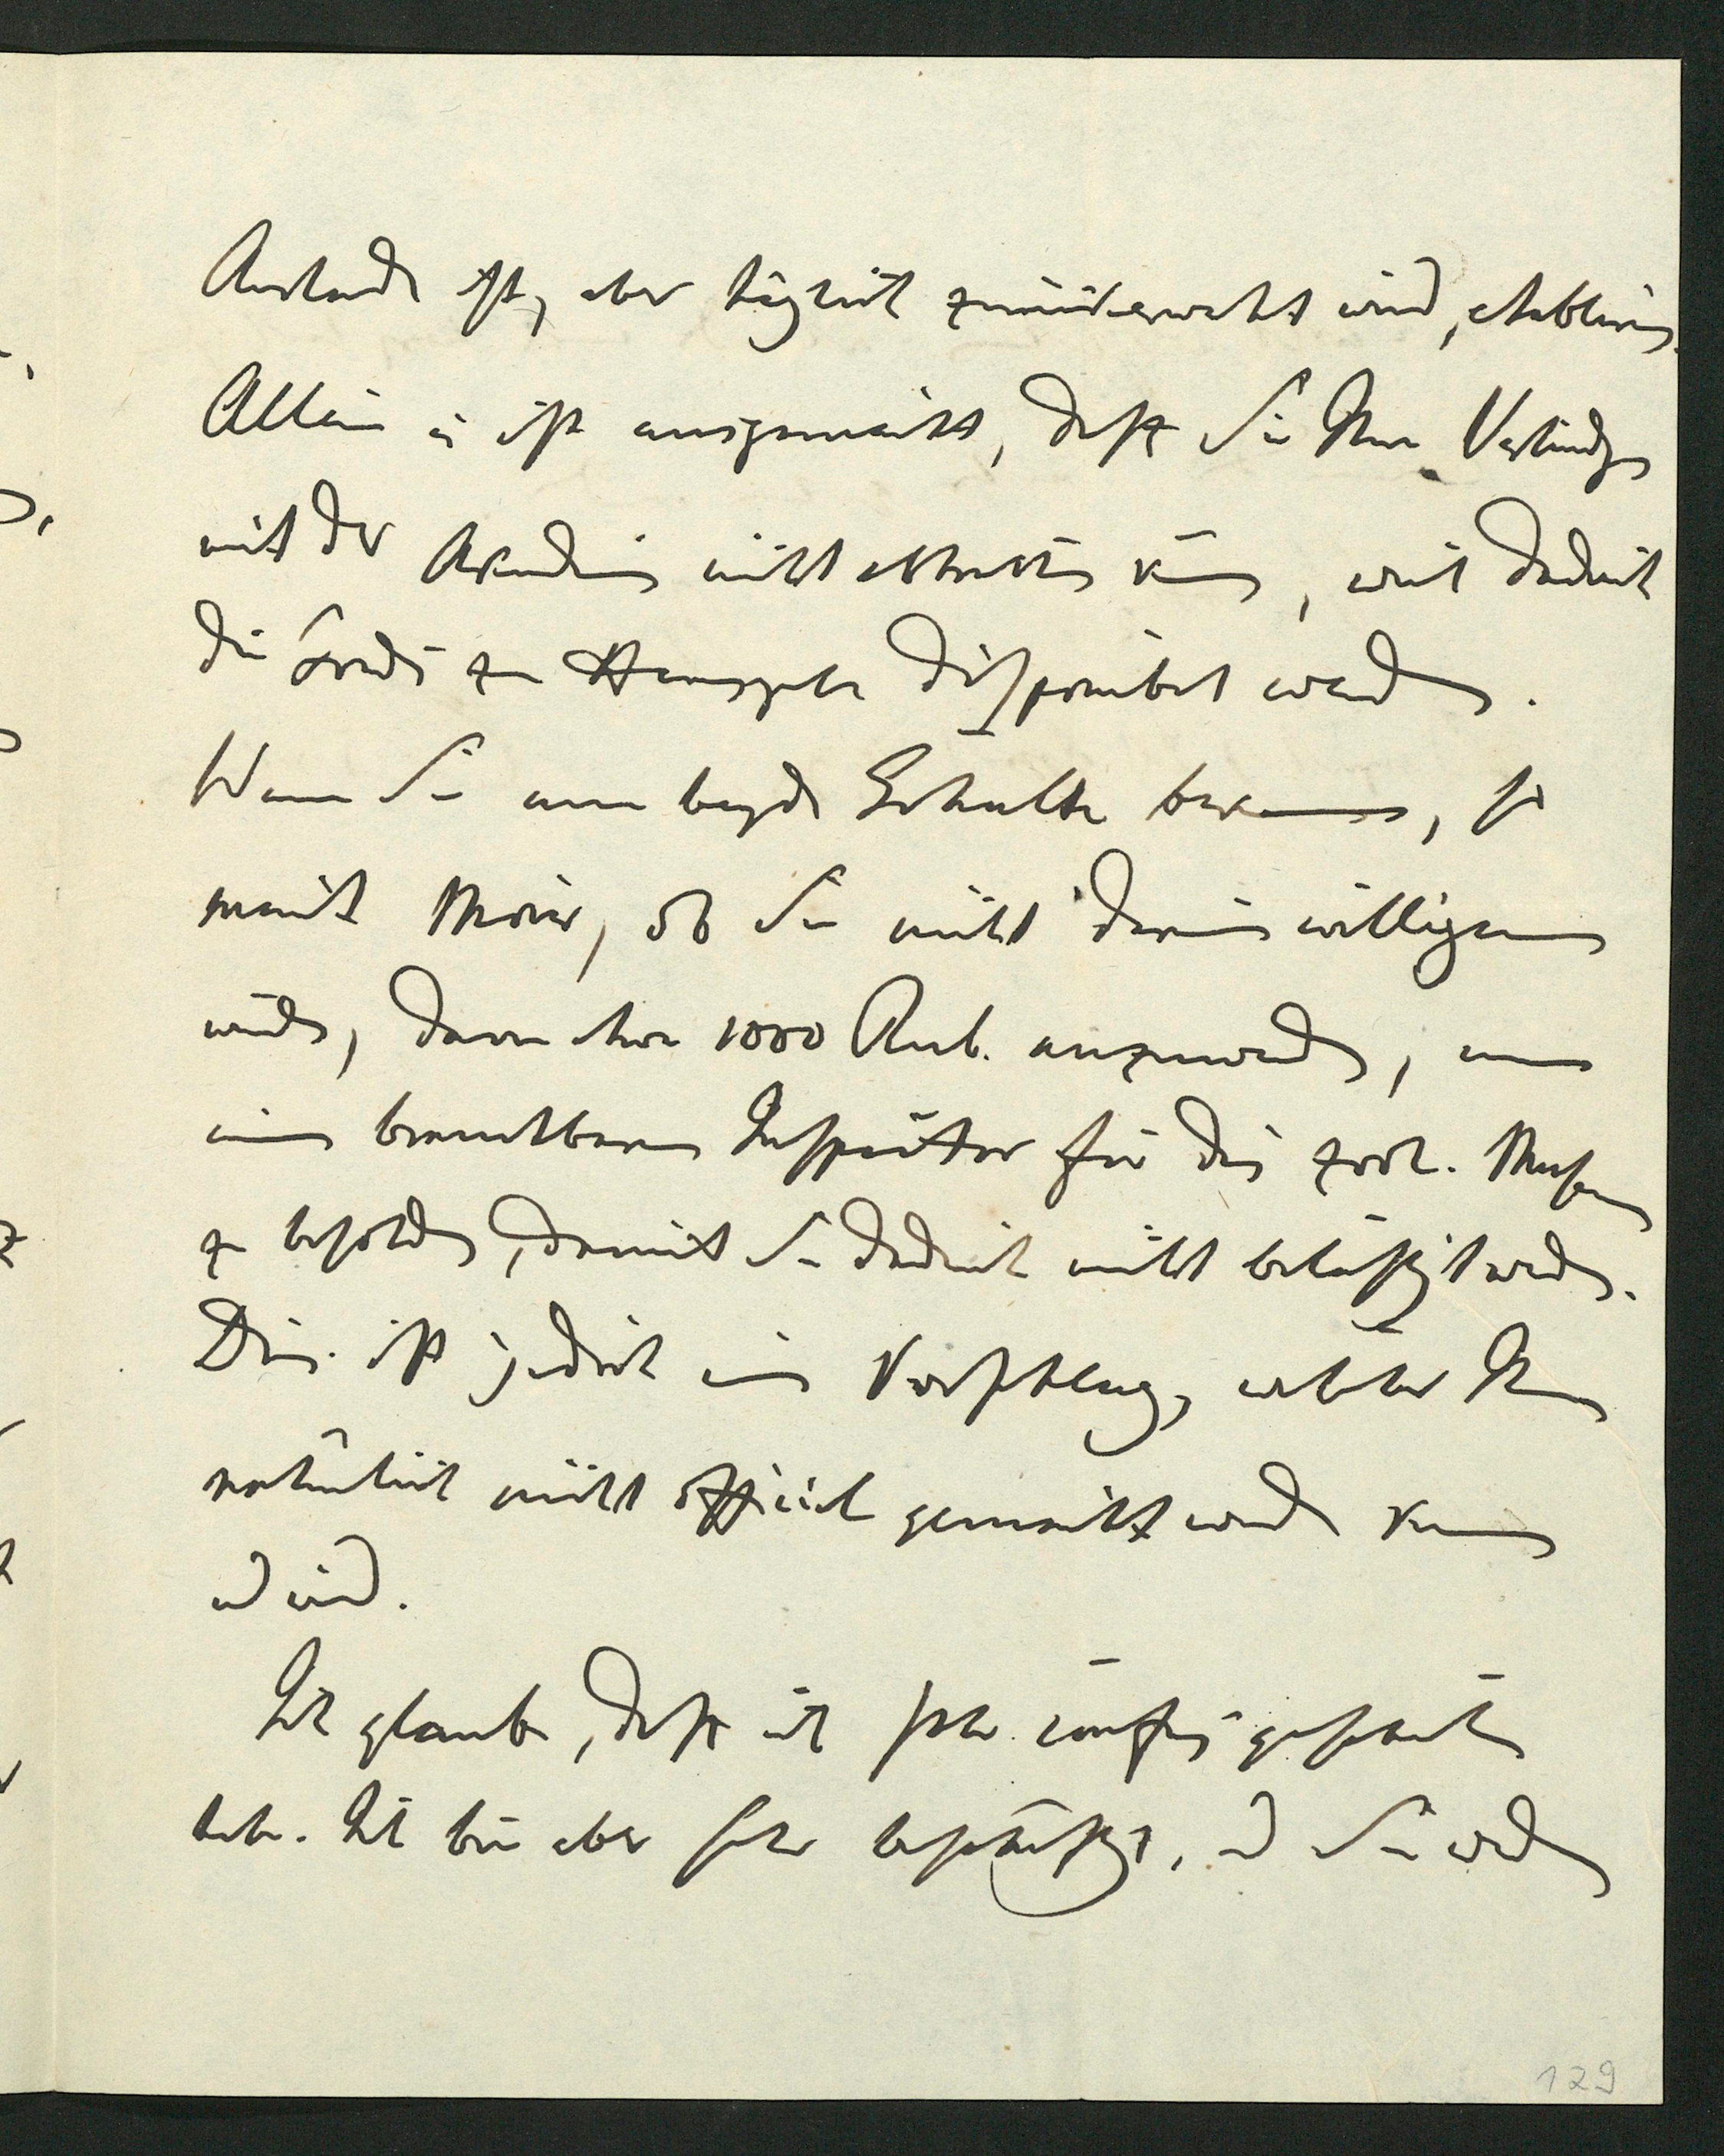 Auslande ist, aber täglich zurückerwartet wird, etabliren.
Allein es ist ausgemacht, daß Sie Ihre Verbindung
mit der Akademie nicht erhalten können, weil dadurch
die Fonds zur Herausgabe disponibel werden.
Wenn Sie nun beyde Gehalte bekommen, so
meint Morier, ob Sie nicht darein willigen
würden, davon etwa 1000 Rub. anzuwenden, um
einen brauchbaren Inspector für das zool. Museum
zu besolden, damit Sie dadurch nicht belästigt werden.
Dies ist jedoch ein Vorschlag, welcher Ihnen
natürlich nicht officiel gemacht werden kann
und wird.
Ich glaube, daß ich sehr confus geschrieben
habe. Ich bin aber sehr beschäftigt, und Sie werden
129